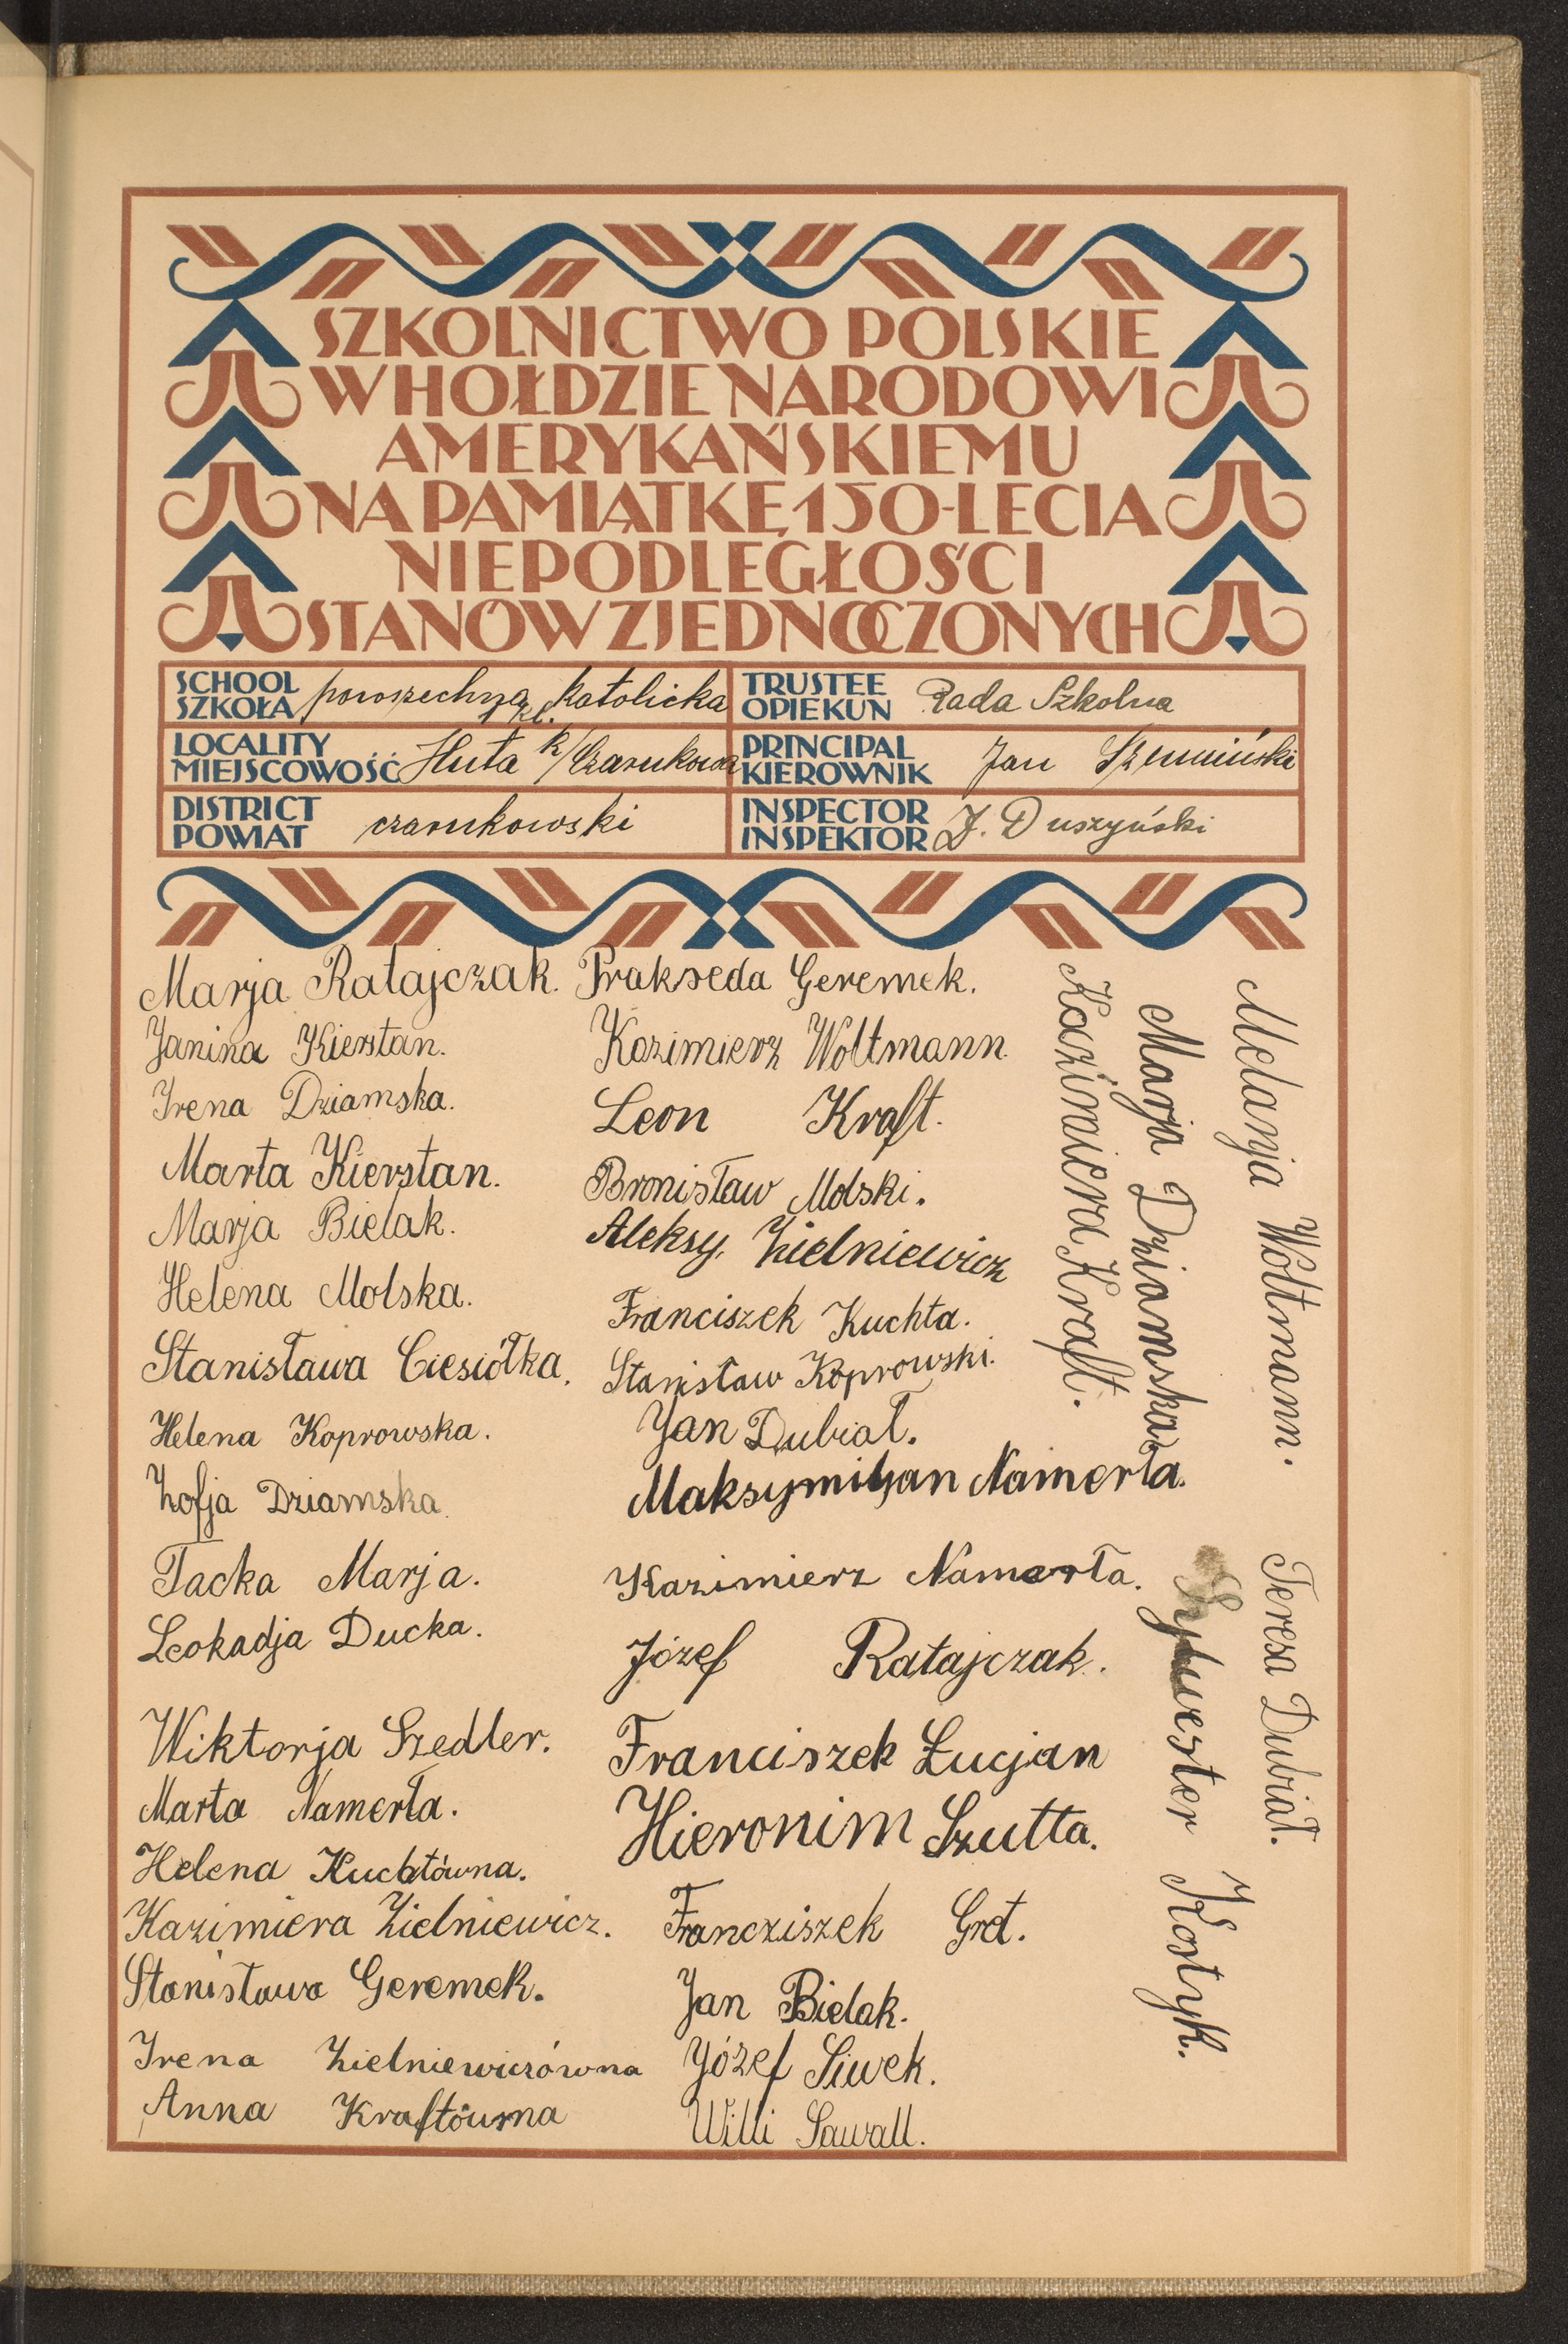 SZKOLNICTWO POLSKIE
W HOŁDZIE NARODOWI
AMERYKAŃSKIEMU
NA PAMIĄTKĘ 150-LECIA
NIEPODLEGŁOŚCI
STANÓW ZJEDNOCZONYCH
SCHOOL
SZKOŁA powszechna kl. katolicka
TRUSTEE
OPIEKUN Rada Szkolna
LOCALITY
MIEJSCOWOŚĆ Huta k/Czarnkowa
PRINCIPAL
KIEROWNIK Jan
DISTRICT
POWIAT czarnkowski
INSPECTOR
INSPEKTOR J. Duszyński
Marja Ratajczak.
Janina Kierstan.
Irena Dziamska.
Marta Kierstan.
Marja Bielak.
Helena Molska.
Stanisława Ciesiółka.
Helena Koprowska.
Zofja Dziamska.
Tacka Marja.
Leokadja Ducka.
Wiktorja Szedler.
Marta Namerła.
Helena Kuchtówna.
Kazimiera Zielniewicz.
Stanisława Geremek.
Irena Zielniewiczówna
Anna Kraftówna
Prakseda Geremek.
Kazimierz Woltmann.
Leon Kraft.
Bronisław Molski.
Aleksy Zielniewicz
Franciszek Kuchta.
Stanisław Koprowski.
Jan Dubiał.
Maksymiljan Namerła.
Kazimierz Namerła.
Józef Ratajczak.
Franciszek Łucjan
Hieronim Szutta.
Francziszek Gret.
Jan Bielak.
Józef Siwek.
Willi Sawall.
Kazimiera Kraft.
Marja Dziamska.
Sylwester Kostyk.
Melanja Woltmann.
Teresa Dubiał.